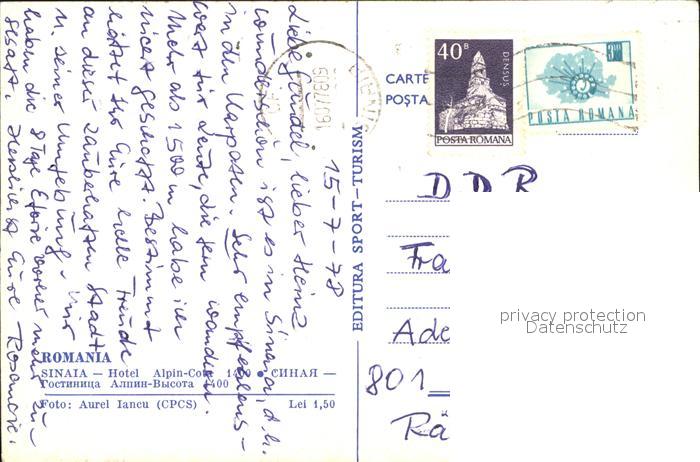 15-7-78
Liebe Gundel, lieber Heinz
wunderschön ist es in Sinaia, d.h.
in den Karpaten. Sehr empfehlens-
wert für Leute, die gern wandern.
Mehr als 1500 m habe ich
nicht geschafft. Bestimmt
hättet Ihr Eure helle Freude
an dieser zauberhaften Stadt
u. seiner Umgebung. Wir
haben die 8 Tage
gesagt. Herzlichst Eure Rosmarie.
ROMANIA
SINAIA — Hotel Alpin-Cota 14 • СИНАЯ —
Гостиница Алпин-Высота 1400
Foto: Aurel Iancu (CPCS) Lei 1,50
EDITURA SPORT-TURISM
CARTE
POȘTA
40 B
DENSUȘ
POSTA ROMANA
POSTA ROMANA
DDR
Fra
Ade
801
Rä
privacy protection
Datenschutz